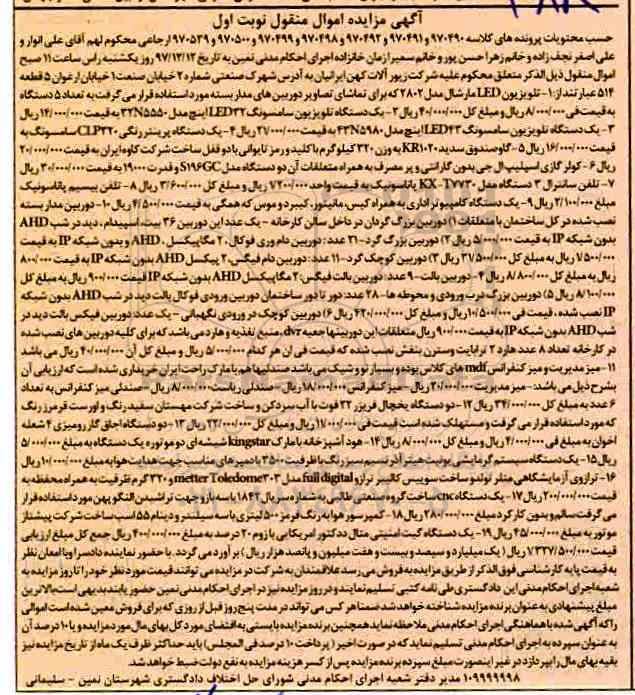 آگهی مزایده اموال منقول نوبت اول
حسب محتویات پرونده های کلاسه ۹۷۰۴۹۰ و ۹۷۰۴۹۱ و ۹۷۰۴۹۲ و ۹۷۰۴۹۸ و ۹۷۰۴۹۹ و ۹۷۰۵۰۰ و ۹۷۰۵۳۹ ارجاعی محکوم لهم آقای علی انوار و
علی اصغر نجف زاده و خانم زهرا حسن پور و خانم سمیرا زمان خانزاده اجرای احکام مدنی نمین به تاریخ ۹۷/۱۲/۱۲ روز یکشنبه راس ساعت ۱۱ صبح
اموال منقول ذیل الذکر متعلق محکوم علیه شرکت زیور آلات کهن ایرانیان به آدرس شهرک صنعتی شماره ۲ خیابان صنعت ۱ خیابان ارغوان ۵ قطعه
۵۱۴ عبارتند از: ۱- تلویزیون LED مارشال مدل ۲۸۰۲ که برای تماشای تصاویر دوربین های مدار بسته مورد استفاده قرار می گرفت به تعداد ۵ دستگاه
به قیمت فی ۸/۰۰۰/۰۰۰ ریال و مبلغ کل ۴۰/۰۰۰/۰۰۰ ریال ۲- یک دستگاه تلویزیون سامسونگ LED۳۲ اینچ مدل ۳۲N۵۵۵۰ به قیمت ۱۴/۰۰۰/۰۰۰ ریال
۳- یک دستگاه تلویزیون سامسونگ LED۴۳ اینچ مدل ۴۳N۵۹۸۰ به قیمت ۲۷/۰۰۰/۰۰۰ ریال ۴- یک دستگاه پرینتر رنگی CLP۳۲۰ سامسونگ به
قیمت ۱۶/۰۰۰/۰۰۰ ریال ۵- گاوصندوق سدید KR۱۰۲۰ به وزن ۳۲۰ کیلوگرم با کلید و رمز تایوانی با دو قفل ساخت شرکت کاوه ایران به قیمت ۲۰/۰۰۰/۰۰۰
ریال ۶- کولر گازی اسپلیت ال جی بدون گارانتی و پر مصرف به همراه متعلقات آن دو دستگاه مدل S۱۹۶GC و قدرت ۱۹۰۰۰ به قیمت ۳۰/۰۰۰/۰۰۰ ریال
۷- تلفن سانترال ۳ دستگاه مدل KX-T۷۷۳۰ پاناسونیک به قیمت واحد ۷۲۰۰/۰۰۰ ریال و مبلغ کل ۳/۶۰۰/۰۰۰ ریال ۸- تلفن بیسیم پاناسونیک
مبلغ ۲/۱۰۰/۰۰۰ ریال ۹- یک دستگاه کامپیوتر اداری به همراه کیس، مانیتور، کیبرد و موس که همگی به قیمت ۴/۵۰۰/۰۰۰ ریال ۱۰- دوربین مدار بسته
نصب شده در کل ساختمان با متعلقات ۱) دوربین بزرگ گردان در داخل سالن کارخانه - یک عدد این دوربین ۳۶ بیت، اسپیدام، دید در شب AHD
بدون شبکه IP به قیمت ۵/۰۰۰/۰۰۰ ریال ۲) دوربین بزرگ گرد-۲۱ عدد: دوربین دام وری فوکال، ۲ مگاپیکسل، AHD و بدون شبکه IP به قیمت
۷/۵۰۰/۰۰۰ ریال به مبلغ کل ۳۷/۵۰۰/۰۰۰ ریال ۳) دوربین کوچک گرد-۱۱ عدد: دوربین دام فیگس، ۲ پیکسل AHD بدون شبکه IP به قیمت ۸۰۰/۰۰۰
ریال به مبلغ کل ۸/۸۰۰/۰۰۰ ریال ۴- دوربین بالت-۹ عدد: دوربین بالت فیگس، ۲ مگاپیکسل AHD بدون شبکه IP قیمت ۹۰۰/۰۰۰ ریال به مبلغ کل
۸/۱۰۰/۰۰۰ ریال ۵) دوربین بزرگ درب ورودی و محوطه ها-۲۸ عدد: دور تا دور ساختمان دوربین ورودی فوکال بالت دید در شب AHD بدون شبکه
IP نصب شده، قیمت فی ۱۵۰۰/۰۰۰ ریال و مبلغ کل ۴۲/۰۰۰/۰۰۰ ریال ۶) دوربین کوچک در ورودی نگهبانی - یک عدد: دوربین فیکس بالت دید در
شب AHD بدون شبکه IP به قیمت ۹۰۰/۰۰۰ ریال متعلقات این دوربینها جعبه dvr، منبع تغذیه و هارد می باشد که برای کلیه دوربین های نصب شده
در کارخانه تعداد ۸ عدد هارد ۲ ترابایت وسترن بنفش نصب شده که قیمت فی ان هر کدام ۵/۰۰۰/۰۰۰ ریال و مبلغ کل آن ۴۰/۰۰۰/۰۰۰ ریال می باشد
۱۱- میز مدیریت و میز کنفرانس mdf های کلاس بوده و بسیار نو و شیک می باشد صندلیها هم با مارک راحت ایران خریداری شده است که ارزیابی آن
بشرح ذیل می باشد- میز مدیریت ۲۰/۰۰۰/۰۰۰ ریال- میز کنفرانس ۱۸/۰۰۰/۰۰۰ ریال- صندلی ریاست ۸/۰۰۰/۰۰۰ ریال- صندلی میز کنفرانس به تعداد
۶ عدد به مبلغ کل ۳۴/۰۰۰/۰۰۰ ریال ۱۲- دو دستگاه یخچال فریزر ۳۲ فوت با آب سردکن و ساخت شرکت مهستان سفید رنگ و اورست قرمز رنگ
که مورد استفاده قرار می گرفت و مستهلک شده است قیمت فی ۱۱/۰۰۰/۰۰۰ ریال و مبلغ کل ۲۲/۰۰۰/۰۰۰ ریال ۱۳- دو دستگاه اجاق گاز رومیزی ۴ شعله
اخوان به مبلغ فی ۴/۰۰۰/۰۰۰ ریال و مبلغ کل ۸/۰۰۰/۰۰۰ ریال ۱۴- هود آشپزخانه با مارک kingstar شیشه ای دو موتوره یک دستگاه به مبلغ ۵/۰۰۰/۰۰۰
ریال ۱۵- یک دستگاه سیستم گرمایشی یونیت هیتر آذر نسیم سبز رنگ با ظرفیت ۳۵۰۰ با دمپرهای مناسب جهت هدایت هوا به مبلغ ۱۰/۰۰۰/۰۰۰ ریال
۱۶- ترازوی آزمایشگاهی متلر تولدو ساخت سوییس کالیبر ترازو full digital مدل metter Toledome۳۰۳ و ۳۲۰ گرم ظرفیت به همراه محفظه به
قیمت ۲۰۰/۰۰۰/۰۰۰ ریال ۱۷- یک دستگاه cnc ساخت گروه صنعتی طالبی به شماره سریال ۱۸۴۲ با سه بازو جهت تراشیدن النگو پهن مورد استفاده قرار
می گرفت سالم و بدون کارکرد مبلغ ۲۸۰/۰۰۰/۰۰۰ ریال ۱۸- کمپرسور هوا به رنگ قرمز ۵۰۰ لیتری با سه سیلندر و دینام ۵۵ اسب ساخت شرکت پیشتاز
موتور به مبلغ ۴۵/۰۰۰/۰۰۰ ریال ۱۹- یک دستگاه گیت امنیتی متال ددکتور امریکایی با زوم ۲۰ درصد به مبلغ ۴۰۰/۰۰۰/۰۰۰ ریال جمع کل مبلغ ارزیابی
قیمت ۷۳۲۷/۵۰۰/۰۰۰ ریال (یک میلیارد و سیصد و بیست و هفت میلیون و پانصد هزار ریال) بر آورد می گردد. با حضور نماینده دادسرا و با امعان نظر
به قیمت پایه کارشناسی فوق الذکر از طریق مزایده به فروش می رسد علاقمندان به شرکت در مزایده می توانند قیمت مورد نظر خود را تا روز مزایده به
شعبه اجرای احکام مدنی این دادگستری طی نامه کتبی تسلیم نمایند و در روز مزایده نیز در اجرای احکام مدنی نمین حضور یابند بدیهی است بالاترین
مبلغ پیشنهادی به عنوان برنده مزایده شناخته خواهد شد ضمنا هر کس می تواند در مدت پنج روز قبل از روزی که برای فروش معین شده است اموالی
را که آگهی شده با هماهنگی اجرای احکام مدنی ملاحظه نماید همچنین برنده مزایده بایستی به اقتضای مورد کل بهای مال مورد مزایده و یا ۱۰ درصد آن
به عنوان سپرده به اجرای احکام مدنی تسلیم نماید که در صورت اخیر (پرداخت ۱۰ درصد فی المجلس) باید حداکثر ظرف یک ماه از تاریخ مزایده نیز
بقیه بهای مال را بپردازد در غیر اینصورت مبلغ سپرده برنده مزایده پس از کسر هزینه مزایده به نفع دولت ضبط خواهد شد.
۱۰۹۹۹۹۹۸ مدیر دفتر شعبه اجرای احکام مدنی شورای حل اختلاف دادگستری شهرستان نمین - سلیمانی